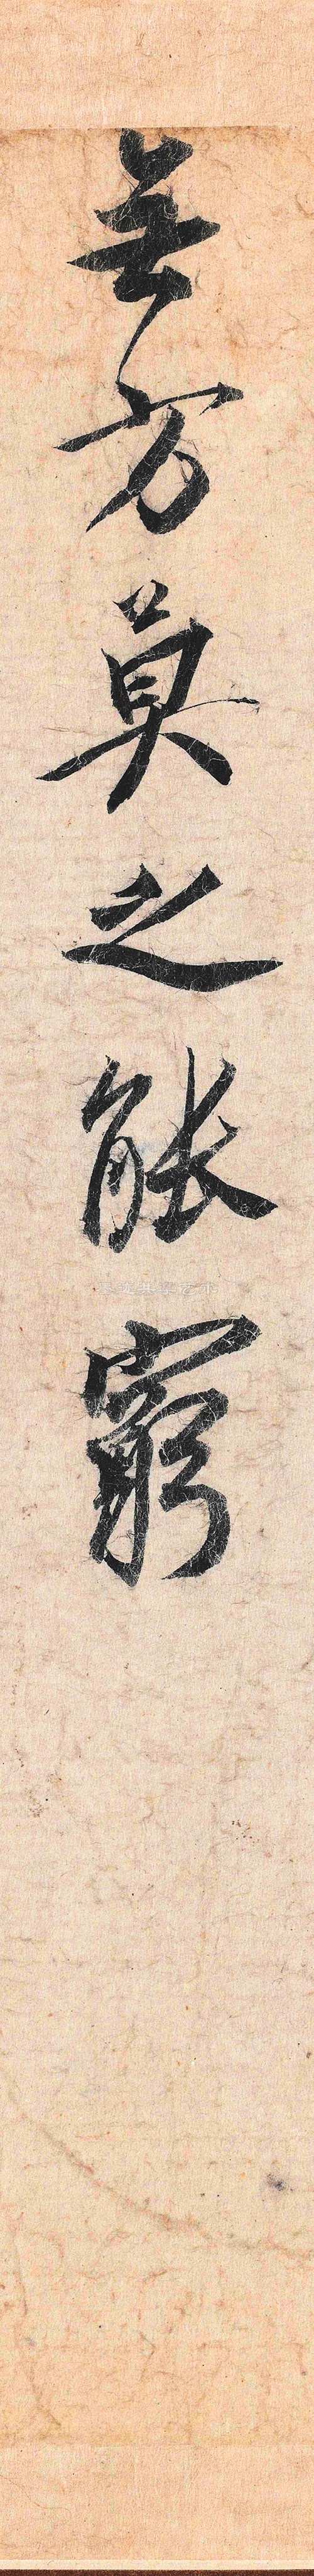 無方莫之能窮